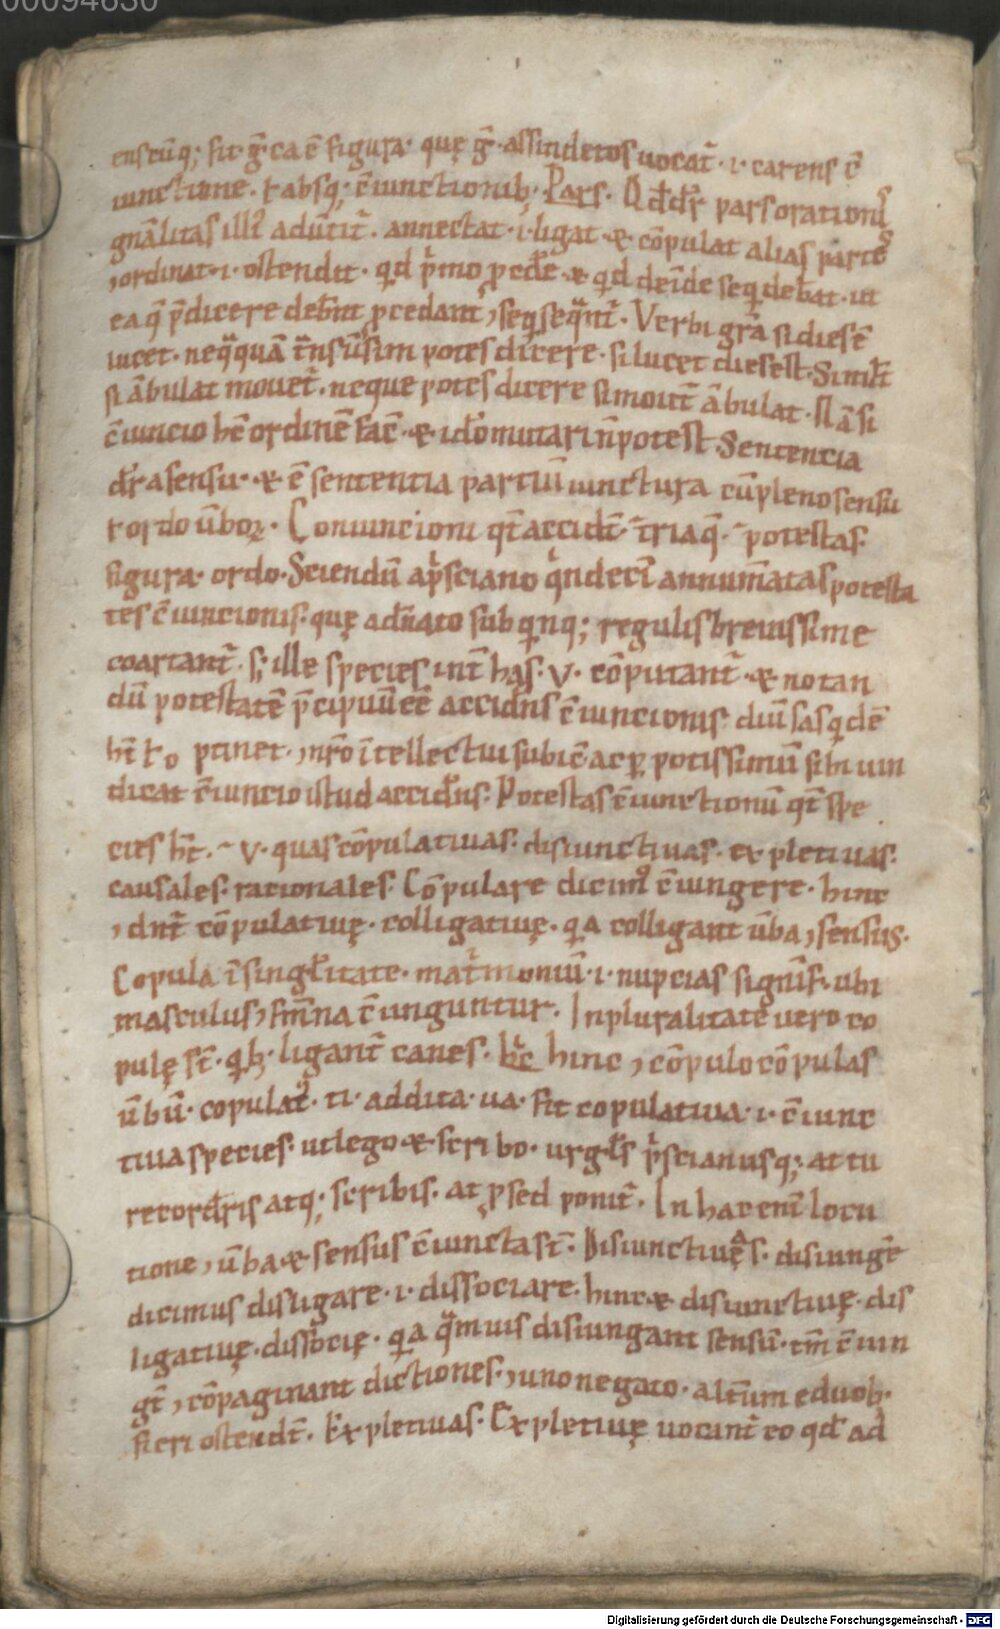 00094830
ensēūq; fit ḡ ca ē figura. quę ḡ. assinderos uocat᷑ .i. carens c̄
iunctione. ƚ absq; c̄iunctionib; Pars. Qd dr̄ pars orationis
gnālitas illi adūtit᷑. annectat .i. ligat & cōpulat alias partes
⁊ ordinat .i. ostendit. qd p̄mo p̄cedē & qd deīde seq̄ debeat. ut
ea q̄ p̄dicere debent p̄cedant, ⁊ seq̄ seq̄nt᷑. Verbi gr̄a si dies ē
lucet. neq̄quā t̄nsūsim potes dicere. si lucet dies est. Similit̄
si ābulat mouet᷑. neque potes dicere si mouet᷑ ābulat. Nā si
c̄iuncio hē ordinē facē. & idō mutari n̄ potest. Sentencia
dr̄ a sensu. & ē sententia partiū iunctura cū pleno sensu
ƚ ordo ūboꝝ. Coniuncioni qt̄ accidt̄. ~tria q̄. ~potestas.
figura. ordo. Sciendū a p̄sciano q̄ndecī annumatas potesta
tes c̄iuncionis. quę a donato sub q̄nq; regulis breuissime
coartant᷑. s; ille species int̄ has .V. cōputant᷑. & notan
dū potestatē p̄cipuū eē accidns c̄iuncionis. diūsas q̄dē
ht̄ ƚo ptinet. ⁊ nr̄o ītellectui subicē. ac p̱ potissimū sibi uin
dicat c̄iuncio istud accidns. Potestas c̄iunctionū qt̄ spe
cies ht̄. ~ V. quas cōpulatiuas. disiunctiuas. expletiuas.
causales. rationales. Cōpulare dicim᷒ c̄iungere. hinc
⁊ dnt᷑ cōpulatiuę. colligatiuę. q̄a colligant ūba, ⁊ sensus.
Copula ī singlitate. mat̄monium .i. nupcias signif. ubi
masculus ⁊ fm̄na c̄iunguntur. In pluralitate uero co
pulę st̄. q̄b; ligant᷑ canes. hinc ⁊ cōpulo cōpulas
ūbū. copulat᷒. ti. addita. ua. fit copulatiua .i. c̄iunc
tiua species. ut lego & scribo. urgls p̄scianusq; at tu
recordris atq; scribis. at p̱ sed ponit᷑. In hac eni locu
tione, ⁊ ūba & sensus c̄iuncta st̄. Disiunctiuęas. disiungē
dicimus disligare .i. dissociare. hinc & disiunctiuę. dis
ligatiuę. dissocię. q̄a q̄muis disiungant sensū. tm̄ c̄iun
gt̄ ⁊ cōpaginant dictiones. ⁊ uno negato. altum e duob;
fieri ostendt̄. Expletiuas. Expletiuę uocant᷑ eo qd̄ ad
Digitalisierung gefördert durch die Deutsche Forschungsgemeinschaft - DFG